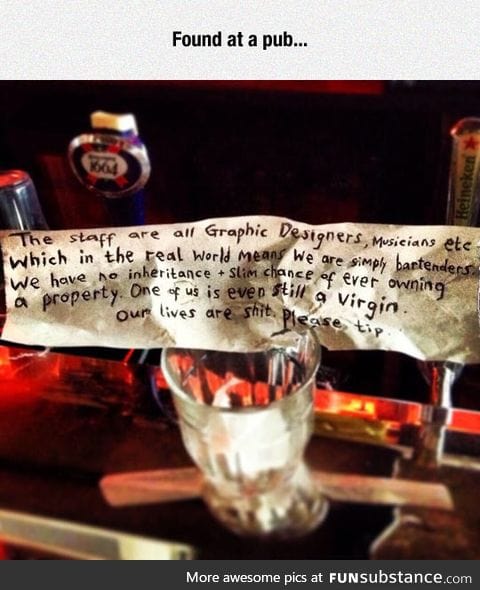 Found at a pub...
1664
Heineken
The staff are all Graphic Designers, Musicians etc
Which in the real world means we are simply bartenders.
We have no inheritance + slim chance of ever owning
a property. One of us is even still a virgin.
Our lives are shit. Please tip.
More awesome pics at FUNsubstance.com